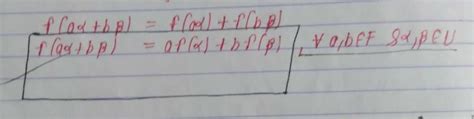 f(aα+bβ) = f(aα)+f(bβ)
f(aα+bβ) = af(α)+bf(β) , ∀ a,b∈F & α,β∈U